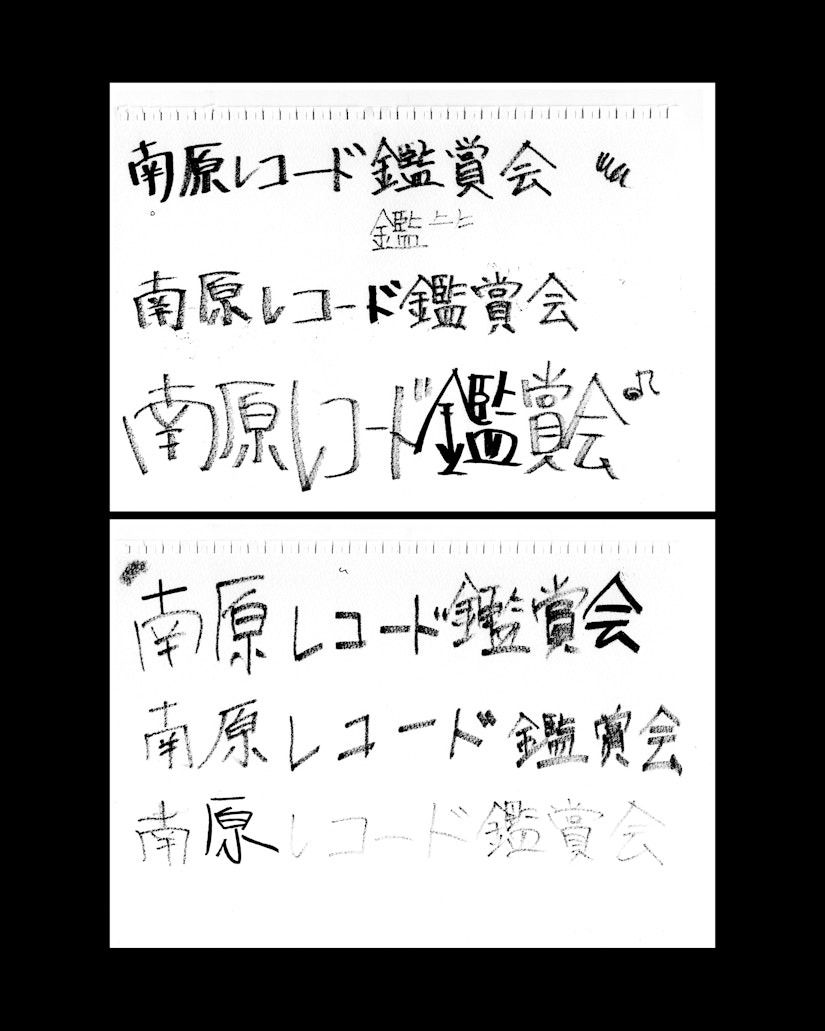 南原レコード鑑賞会
鑑
南原レコード鑑賞会
南原レコード鑑賞会♪
南原レコード鑑賞会
南原レコード鑑賞会
南原レコード鑑賞会